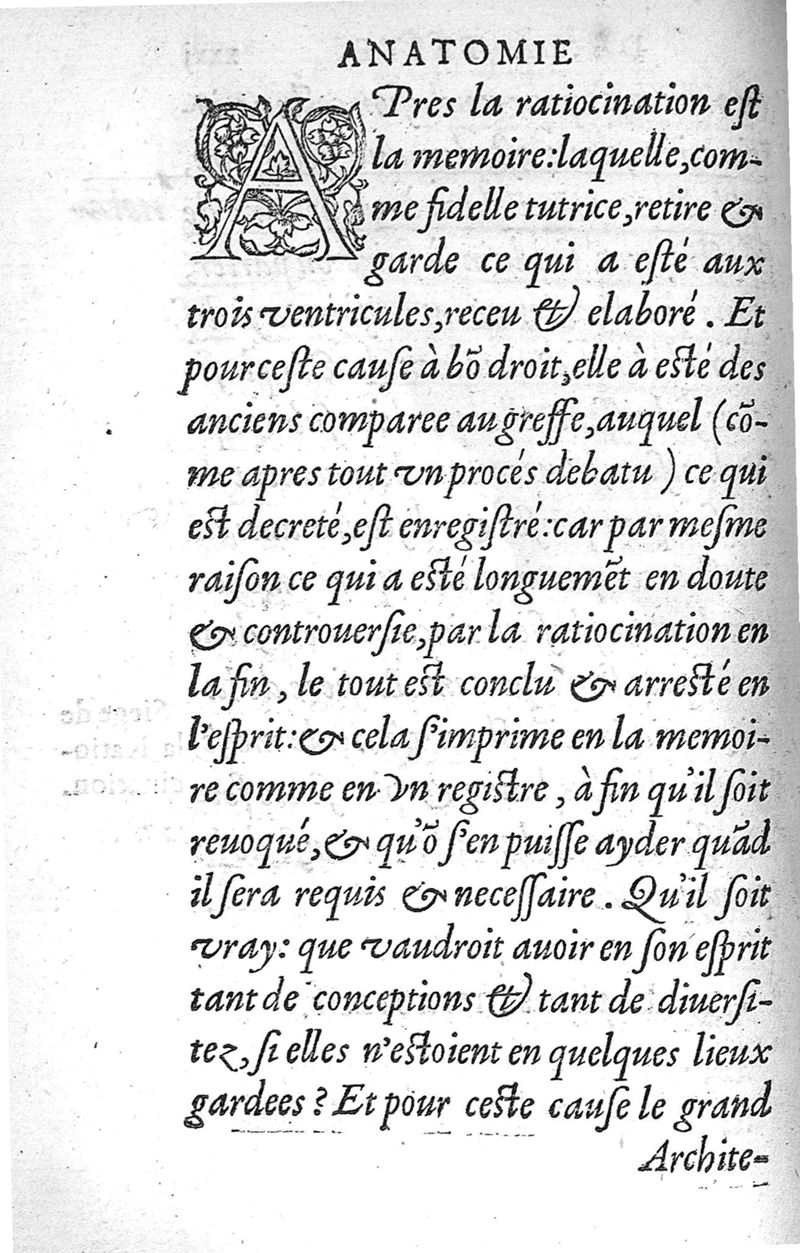 ANATOMIE
APres la ratiocination eſt
la memoire:laquelle,com-
me fidelle tutrice,retire &
garde ce qui a eſté aux
trois ventricules,receu & elaboré. Et
pour ceſte cauſe à bõ droit,elle à eſté des
anciens comparee au greffe,auquel (cõ-
me apres tout vn procés debatu ) ce qui
eſt decreté,eſt enregiſtré:car par meſme
raiſon ce qui a eſté longuemẽt en doute
& controuerſie,par la ratiocination en
la fin, le tout eſt conclu & arreſté en
l'eſprit:& cela ſ'imprime en la memoi-
re comme en vn regiſtre, à fin qu'il ſoit
reuoqué,& qu'õ ſ'en puiſſe ayder quãd
il ſera requis & neceſſaire. Qu'il ſoit
vray: que vaudroit auoir en ſon eſprit
tant de conceptions & tant de diuerſi-
tez,ſi elles n'eſtoient en quelques lieux
gardees? Et pour ceſte cauſe le grand
Archite-